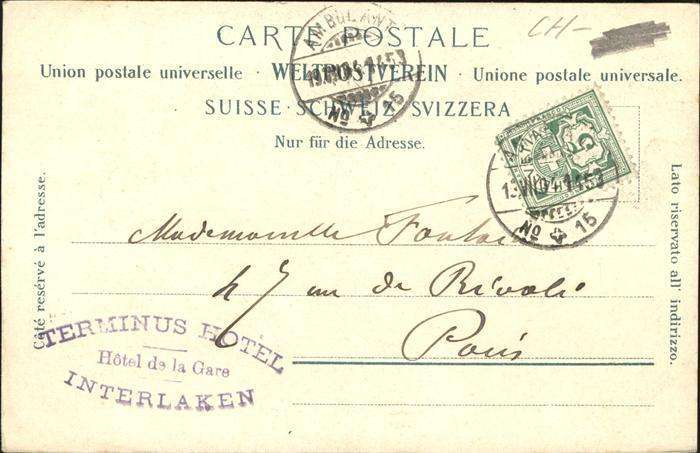 CH-
CARTE POSTALE
Union postale universelle · WELTPOSTVEREIN · Unione postale universale.
SUISSE · SCHWEIZ · SVIZZERA
Nur für die Adresse.
AMBULANT
No 15
5
No 15
Côté resérvé à l'adresse.
Lato riservato all' indirizzo.
Mademoiselle
47 rue de Rivoli
Paris
TERMINUS HOTEL
Hôtel de la Gare
INTERLAKEN